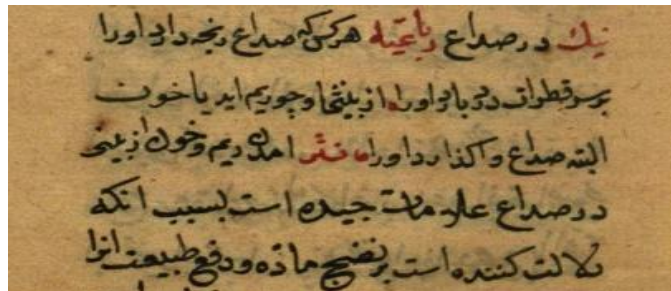 نیك در صداع رباعیه هرکس که صداع رنجه دارد اورا
برسر قطرات در باد اورا از بینیها و چو ریم اید یا خون
البته صداع واکذارد اورا امدن ریم و خون از بینی
در صداع علامات جیده است بسبب انکه
دلالت کننده است بر نضج ماده و دفع طبیعت انرا